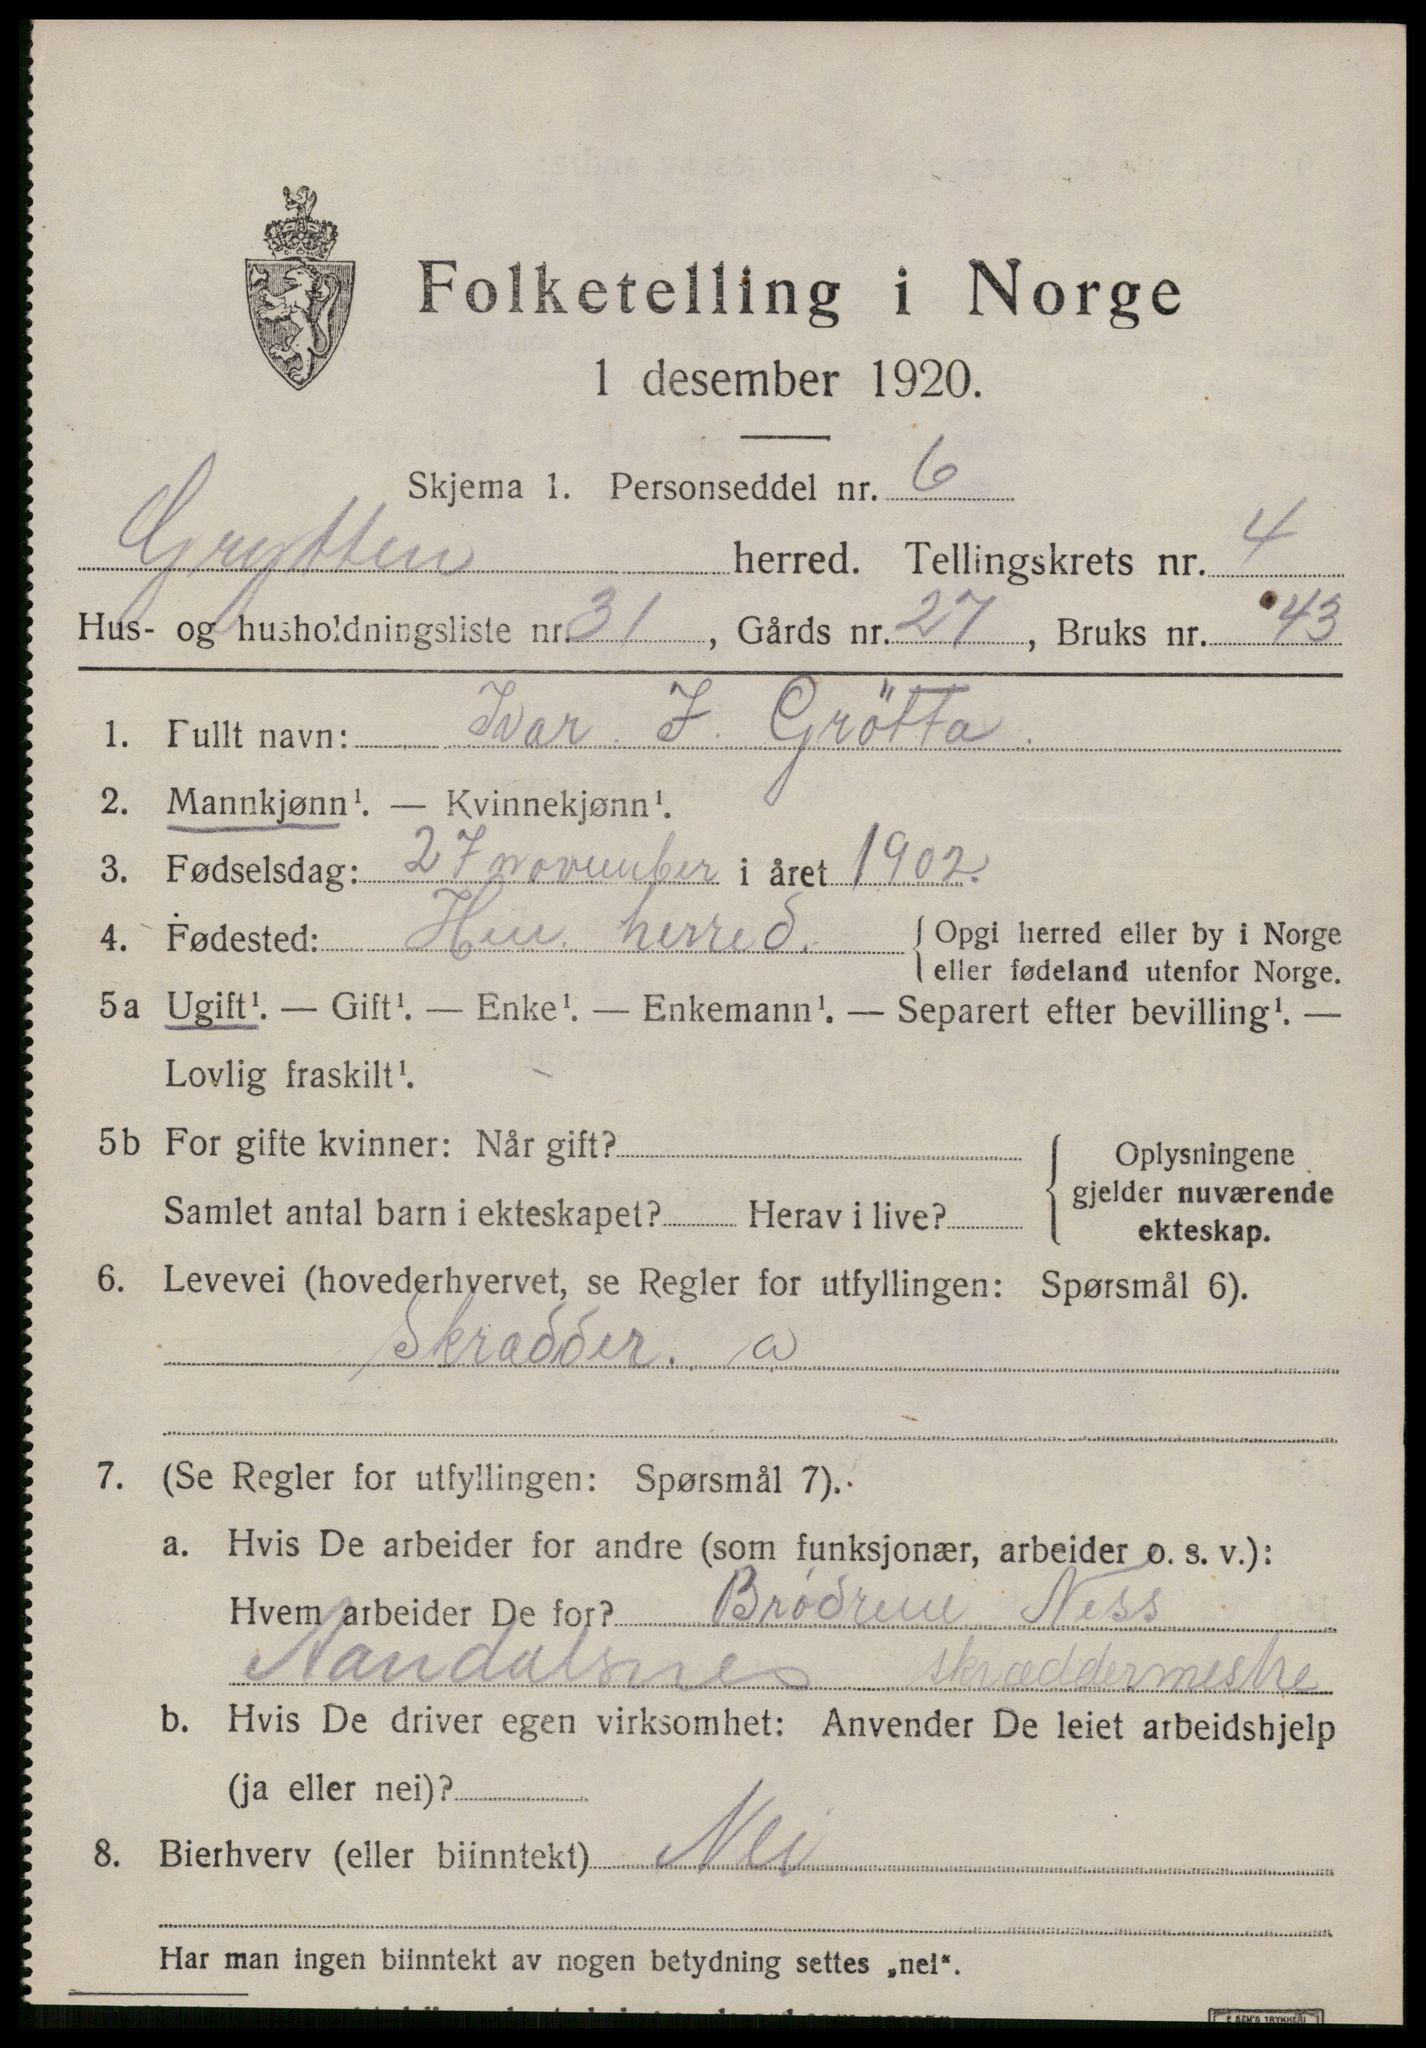 Folketelling i Norge
1 desember 1920.
Skjema 1. Personseddel nr. 6
Grytten herred. Tellingskrets nr. 4
Hus- og husholdningsliste nr. 31, Gårds nr. 27, Bruks nr. 43
1. Fullt navn: Ivar I. Grötta.
2. Mannkjønn¹. — Kvinnekjønn¹.
3. Fødselsdag: 27 november i året 1902.
4. Fødested: Hen herred. Opgi herred eller by i Norge
eller fødeland utenfor Norge.
5a Ugift¹. — Gift¹. — Enke¹. — Enkemann¹. — Separert efter bevilling¹. —
Lovlig fraskilt¹.
5b For gifte kvinner: Når gift? Oplysningene
gjelder nuværende
Samlet antal barn i ekteskapet? Herav i live?
ekteskap.
6. Levevei (hovederhvervet, se Regler for utfyllingen: Spørsmål 6).
Skradder. a
7. (Se Regler for utfyllingen: Spørsmål 7).
a. Hvis De arbeider for andre (som funksjonær, arbeider o. s. v.):
Hvem arbeider De for? Brödrene Ness
Aandalsnes skræddermestre
b. Hvis De driver egen virksomhet: Anvender De leiet arbeidshjelp
(ja eller nei)?
8. Bierhverv (eller biinntekt) Nei
Har man ingen biinntekt av nogen betydning settes „nei“.